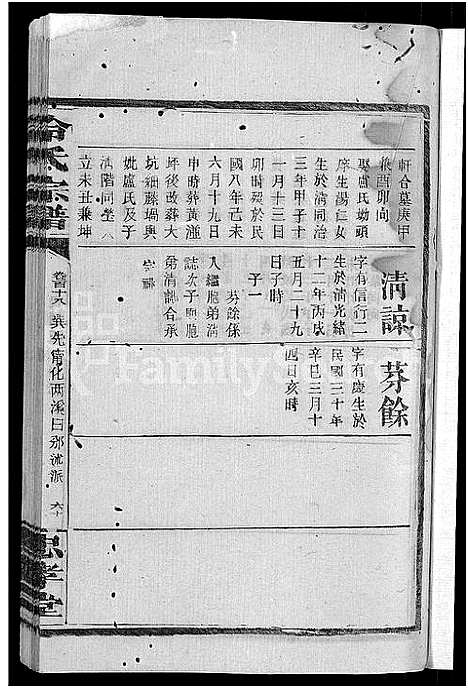 軒合墓庚甲
兼酉卯向
娶盧氏塘頭
庠生湯仁女
生於清同治
三年甲子十
一月十三日
卯時歿於民
國八年己未
六月十九日
申時葬黃潭
坪後改葬大
坑細藤塅與
妣盧氏及子
清階同塋
立未丑兼坤
清諒
字有信行二
生於清光緒
十二年丙戌
五月二十九
日子時
子一
芬餘係
入繼胞弟清
誌次子與胞
弟清訓合承
宗祧
芬餘
字有慶生於
民國三十年
辛巳三月十
四日亥時
氏宗譜
卷首十六 寧化兩溪口邠述派 六十
忠孝堂
FamilySearch